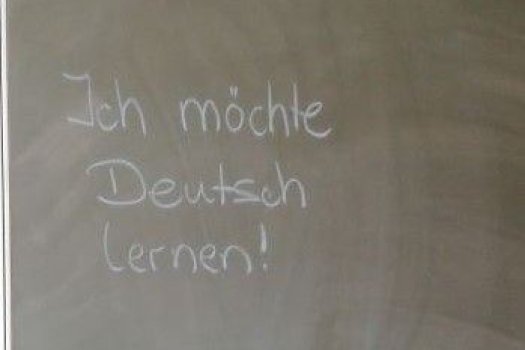 Ich möchte
Deutsch
lernen!